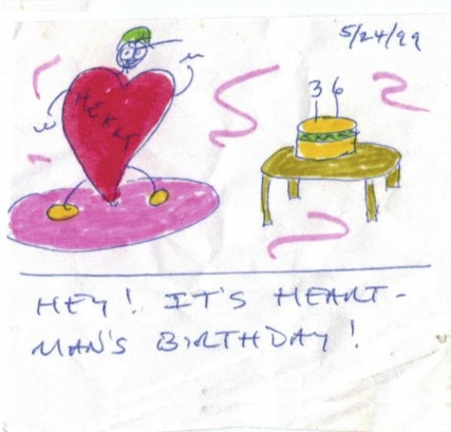 5/24/99
36
HEY! IT'S HEART-
MAN'S BIRTHDAY!